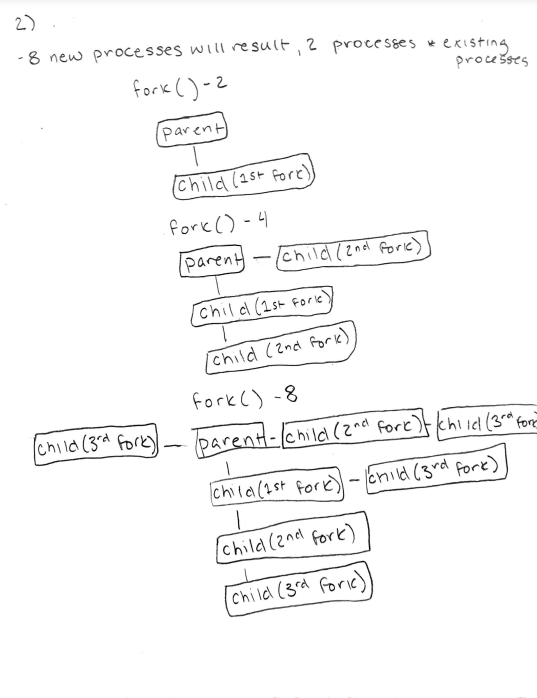 2)
-8 new processes will result, 2 processes * existing
processes
fork()-2
parent
child (1st fork)
fork() - 4
parent - child (2nd fork)
child (1st fork)
child (2nd fork)
fork() -8
child (3rd fork) - parent - child (2nd fork) - child (3rd fork
child (1st fork) - child (3rd fork)
child (2nd fork)
child (3rd fork)